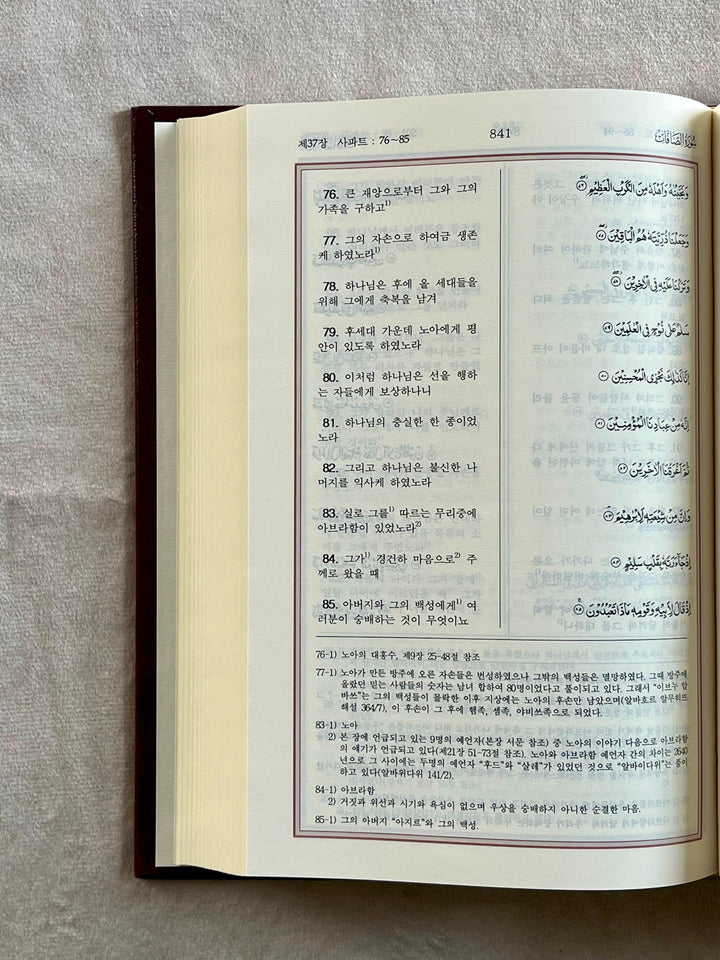 제37장 사파트 : 76~85
841
سُورَةُ الصَّافَّات
76. 큰 재앙으로부터 그와 그의
가족을 구하고1)
77. 그의 자손으로 하여금 생존
케 하였노라1)
78. 하나님은 후에 올 세대들을
위해 그에게 축복을 남겨
79. 후세대 가운데 노아에게 평
안이 있도록 하였노라
80. 이처럼 하나님은 선을 행하
는 자들에게 보상하나니
81. 하나님의 충실한 한 종이었
노라
82. 그리고 하나님은 불신한 나
머지를 익사케 하였노라
83. 실로 그를1) 따르는 무리중에
아브라함이 있었노라2)
84. 그가1) 경건하 마음으로2) 주
께로 왔을 때
85. 아버지와 그의 백성에게1) 여
러분이 숭배하는 것이 무엇이뇨
وَنَجَّيْنَاهُ وَأَهْلَهُ مِنَ الْكَرْبِ الْعَظِيمِ
وَجَعَلْنَا ذُرِّيَّتَهُ هُمُ الْبَاقِينَ
وَتَرَكْنَا عَلَيْهِ فِي الْآخِرِينَ
سَلَامٌ عَلَى نُوحٍ فِي الْعَالَمِينَ
إِنَّا كَذَلِكَ نَجْزِي الْمُحْسِنِينَ
إِنَّهُ مِنْ عِبَادِنَا الْمُؤْمِنِينَ
ثُمَّ أَغْرَقْنَا الْآخَرِينَ
وَإِنَّ مِنْ شِيعَتِهِ لَإِبْرَاهِيمَ
إِذْ جَاءَ رَبَّهُ بِقَلْبٍ سَلِيمٍ
إِذْ قَالَ لِأَبِيهِ وَقَوْمِهِ مَاذَا تَعْبُدُونَ
76-1) 노아의 대홍수, 제9장 25-48절 참조
77-1) 노아가 만든 방주에 오른 자손들은 번성하였으나 그밖의 백성들은 멸망하였다. 그때 방주에
올랐던 믿는 사람들의 숫자는 남녀 합하여 80명이었다고 풀이되고 있다. 그래서 "이브누 압
바쓰"는 그의 백성들이 몰락한 이후 지상에는 노아의 후손만 남았으며(알바흐르 알무히뜨
해설 364/7), 이 후손이 그 후에 햄족, 셈족, 야비쓰족으로 되었다.
83-1) 노아
2) 본 장에 언급되고 있는 9명의 예언자(본장 서문 참조) 중 노아의 이야기 다음으로 아브라함
의 얘기가 언급되고 있다(제21장 51-73절 참조). 노아와 아브라함 예언자 간의 차이는 2640
년으로 그 사이에는 두명의 예언자 "후드"와 "살레"가 있었던 것으로 "알바이다위"는 풀이
하고 있다(알바위다위 141/2).
84-1) 아브라함
2) 거짓과 위선과 시기와 욕심이 없으며 우상을 숭배하지 아니한 순결한 마음.
85-1) 그의 아버지 "아지르"와 그의 백성.